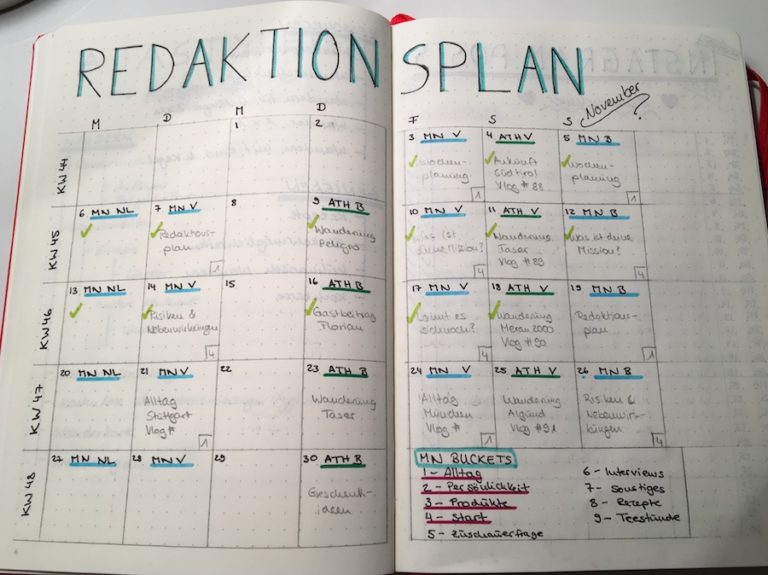 REDAKTIONSPLAN
November
M D M D
KW 44
1 2
KW 45
6 MN NL
7 MN V
Redaktions-
plan
1
8
9 ATH B
Wanderung
KW 46
13 MN NL
14 MN V
Risiken &
Nebenwirkungen
4
15
16 ATH B
Gastbeitrag
Florian
KW 47
20 MN NL
21 MN V
Alltag
Stuttgart
Vlog #
1
22
23 ATH B
Wanderung
Taser
KW 48
27 MN NL
28 MN V
29
30 ATH B
Geschenk-
ideen
6
F S S
3 MN V
Wochen-
planung
1
4 ATH V
Ankunft
Südtirol
Vlog # 88
5 MN B
Wochen-
planung
1
10 MN V
Was ist
deine Mission?
4
11 ATH V
Wanderung
Taser
Vlog # 89
12 MN B
Was ist deine
Mission?
4
17 MN V
18 ATH V
Wanderung
Meran 2000
Vlog # 90
19 MN B
Redaktions-
plan
1
24 MN V
Alltag
München
Vlog #
1
25 ATH V
Wanderung
Vlog # 91
26 MN B
Risiken &
Nebenwir-
kungen
4
MN BUCKETS
1 - Alltag
2 - Persönlichkeit
3 - Produkte
4 - Start
5 - Zuschauerfrage
6 - Interviews
7 - Sonstiges
8 - Rezepte
9 - Teestunde